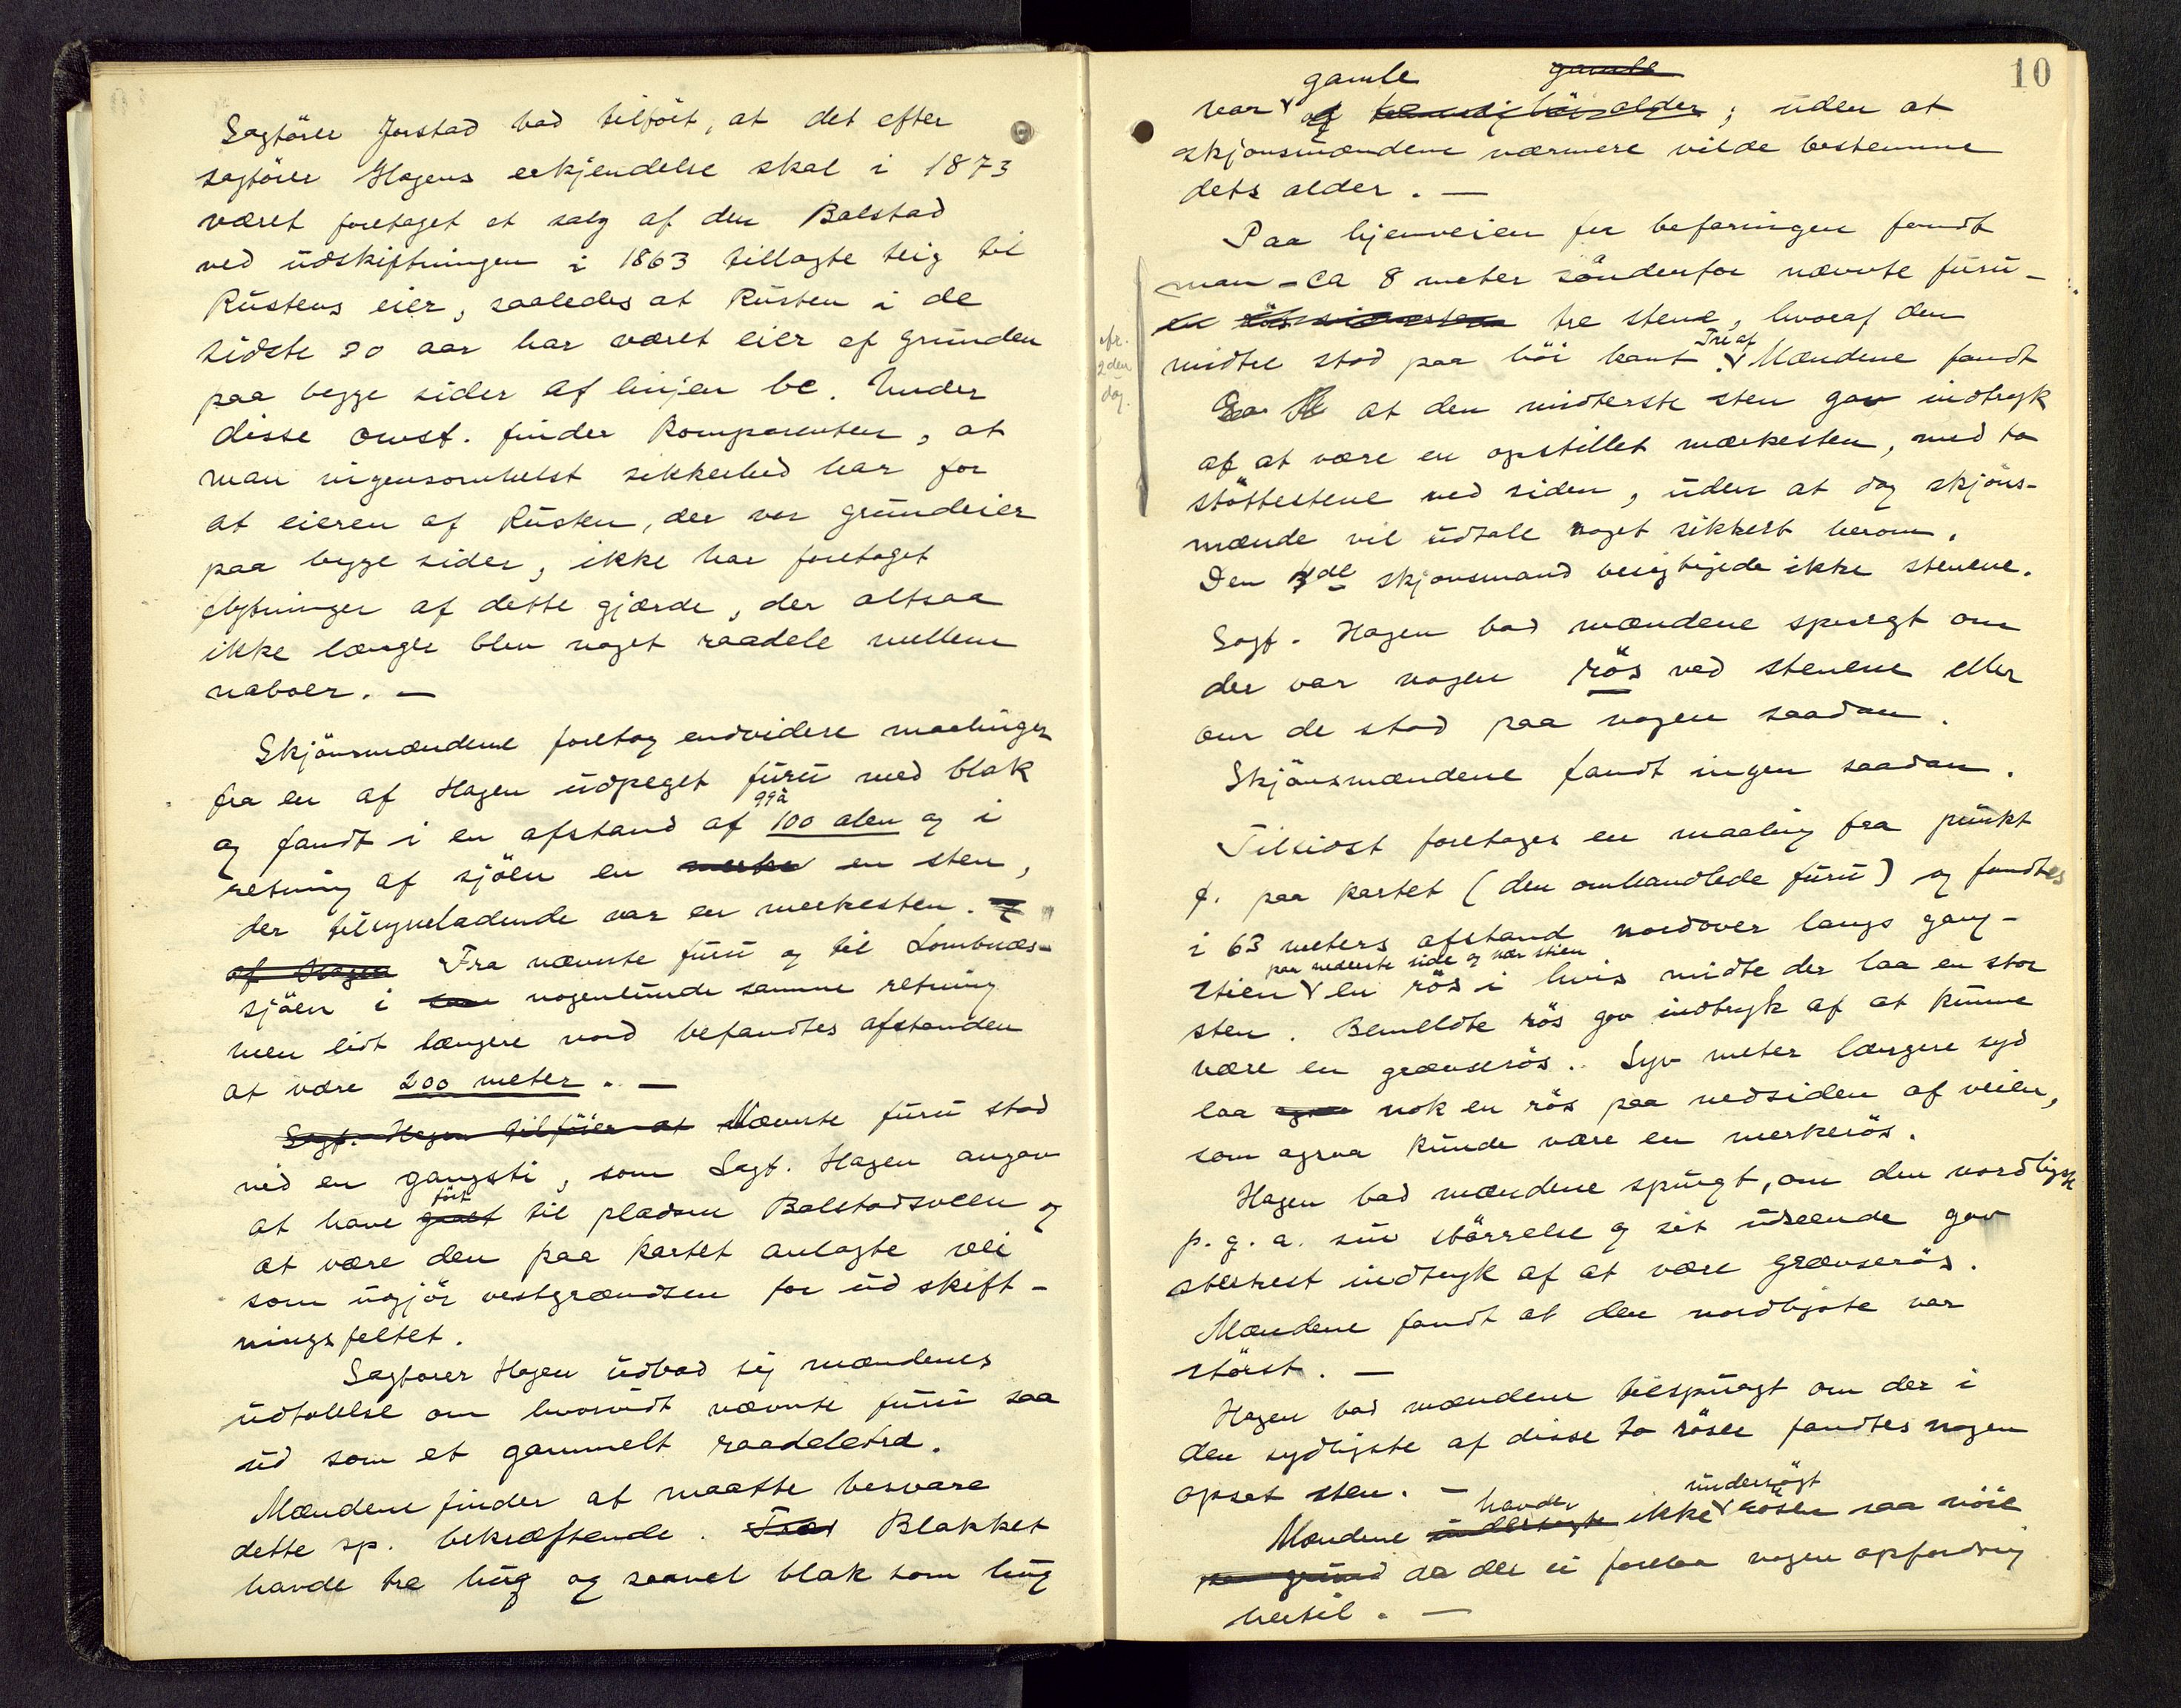 Sagförer Jorstad bad tilföit, at det efter
sagförer Hagens erkjendelse skal i 1873
været foretaget et salg af den Balstad
ved udskiftningen i 1863 tillagte teig til
Rustens eier, saaledes at Rusten i de
sidste 30 aar har været eier af grunden
paa begge sider af linjen bc. Under
disse omst. finder Komparenten, at
man ingensomhelst sikkerhed har for
at eieren af Rusten, der var grundeier
paa begge sider, ikke har foretaget
flytninger af dette gjærde, der altsaa
ikke længer blev noget raadele mellem
naboer. —
Skjönsmændene foretog endvidere maalinger
fra en af Hagen udpeget furu med blak
99 à
og fandt i en afstand af 100 alen og i
retning af sjöen en merke en sten,
der tilsyneladende var en merkesten. og
af Hagen Fra nævnte furu og til Lombnæs-
sjöen i sam nogenlunde samme retning
men lidt længere nord befandtes afstanden
at være 200 meter. —
Sagf. Hagen tilföier at Nævnte furu stod
ved en gangsti, som Sagf. Hagen angav
fört
at have gaaet til pladsen Balstadsveen og
at være den paa kartet anlagte vei
som udgjör vestgrændsen for udskift-
ningsfeltet.
Sagförer Hagen udbad sig mændenes
udtalelse om hvorvidt nævnte furu saa
ud som et gammelt raadeletræ.
Mændene finder at maatte besvare
dette sp. bekræftende. Træet Blakket
havde tre hug og saavel blak som hug
10
gamle gamle
var af alder; uden at
skjönsmændene nærmere vilde bestemme
dets alder. —
Paa hjemveien fra befaringen fandt
man - ca 8 meter söndenfor nævnte furu -
en tre stene, hvoraf den
Tre af
midtre stod paa höi kant. Mændene fandt
at den midterste sten gav indtryk
af at være en opstillet merkesten, med to
stöttestene ved siden, uden at dog skjöns-
mænde vil udtale noget sikkert herom.
Den 4de skjönsmand besigtigede ikke stenene.
efr.
2den
dag.
Sagf. Hagen bad mændene spurgt om
der var nogen rös ved stenene eller
om de stod paa nogen saadan.
Skjönsmændene fandt ingen saadan.
Tilsidst foretages en maaling fra punkt
f. paa kartet (den omhandlede furu) og fandtes
i 63 meters afstand nordover langs gang-
paa nederste side og nær stien
stien en rös i hvis midte der laa en stor
sten. Bemeldte rös gav indtryk af at kunne
være en grænserös. Syv meter længere syd
laa ogsaa nok en rös paa nedsiden af veien,
som ogsaa kunde være en merkerös.
Hagen bad mændene spurgt, om den nordligste
p. g. a. sin störrelse og sit udseende gav
sterkest indtryk af at være grænserös.
Mændene fandt at den nordligste var
störst. —
Hagen bad mændene tilspurgt om der i
den sydligste af disse to röser fandtes nogen
opsat sten. —
havde undersögt
Mændene undersögte ikke rösen saa nöie
paa grund da der ei forelaa nogen opfordring
hertil. —